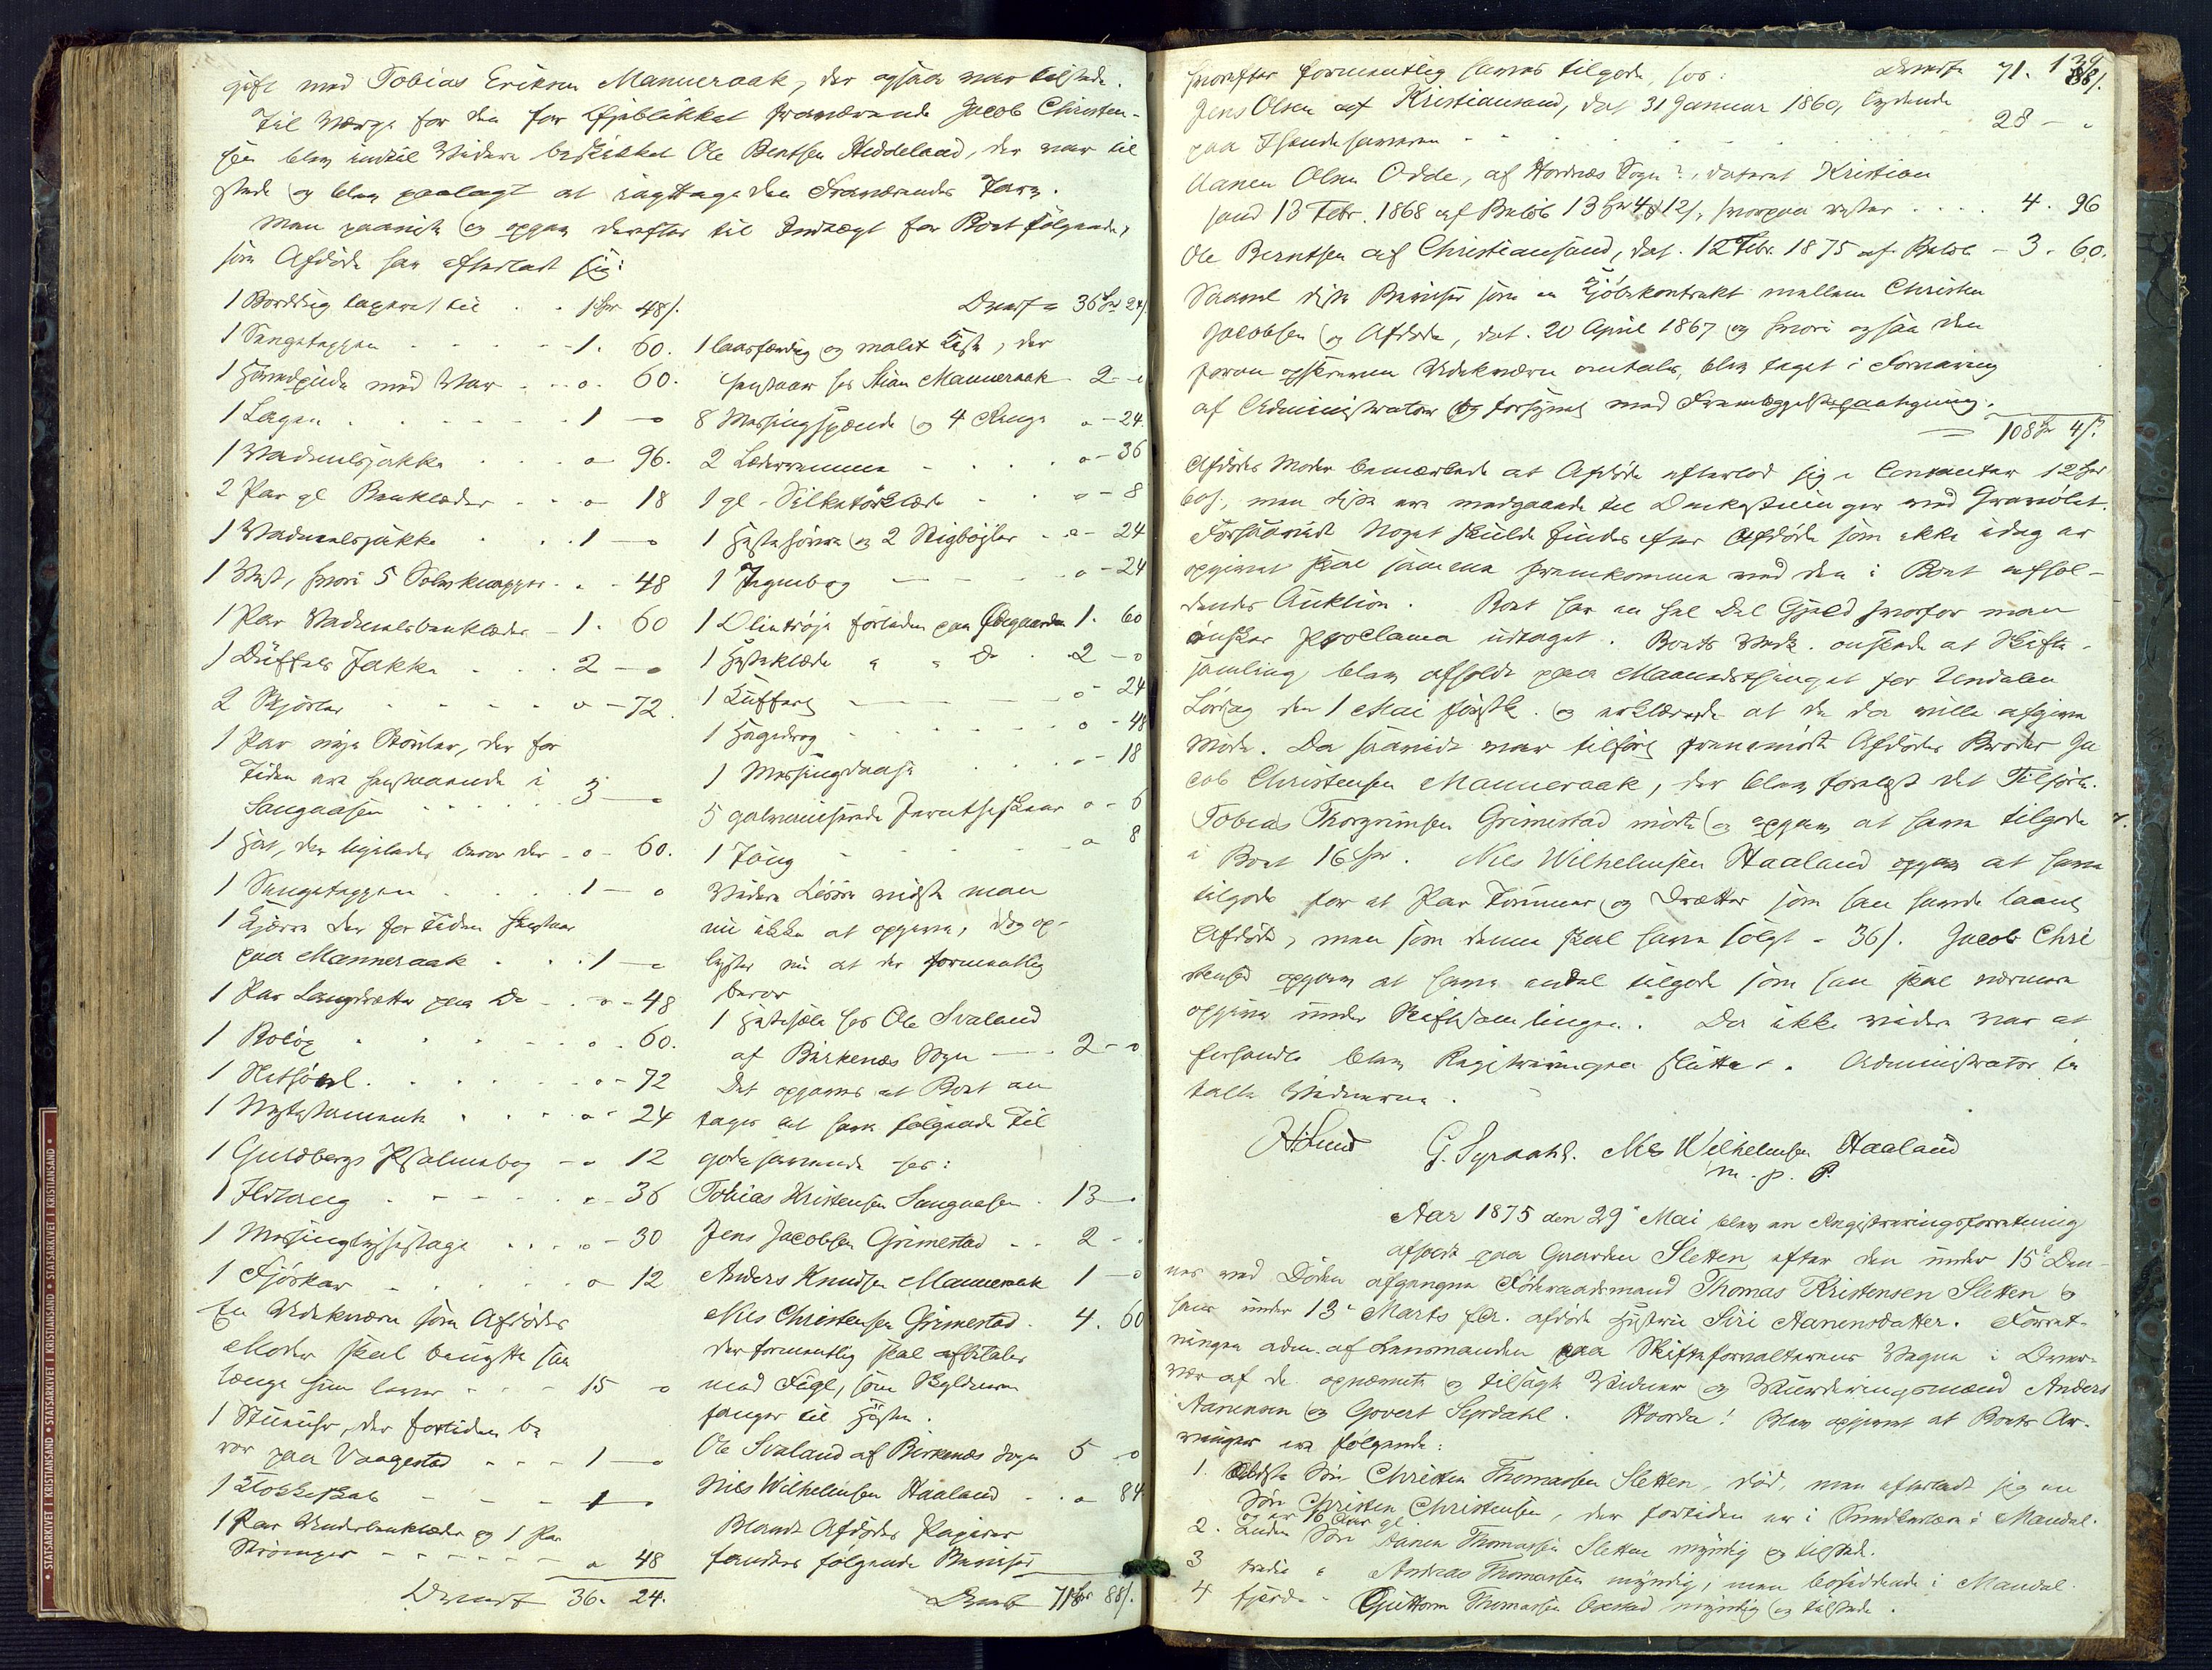 gift med Tobias Eriksen Manneraak, der ogsaa var tilstede.
Til Værge for den for Øjeblikket fraværende Jacob Christen-
sen blev indtil Videre beskikket Ole Bentsen Heddeland, der var til
stede og blev paalagt at iagttage den Fraværendes Tarv.
Man paaviste og opgav derefter til Indtægt for Boet følgende,
som Afdøde har efterladt sig:
1 Bordvæg taxeret til . . 1 Spd 48 s.
1 Sengetæppe - - - - 1. 60.
1 Hovedpude med Vaar . . o. 60.
1 Lagen . . . . . 1 - o
1 Vadmelsjakke . . . o - 96.
2 Par gl Benklæder . . o - 18
1 Vadmelsjakke . . . 1 - o
1 Vest, hvori 5 Sølvknapper . . - 48
1 Par Vadmelsbenklæder - 1. 60
1 Düffels Jakke . . . 2 - o
2 Skjorter . . . . o - 72.
1 Par nye Støvler, der for
Tiden ere henstaaende i
Sangaasen . . . . 3 - o
1 Hat, der ligeledes beror der - o - 60.
1 Sengetæppe . . . . 1 - o
1 Kjærre der for Tiden henstaar
paa Manneraak . . . 1 - o
1 Par Langdrætter paa Do - . o - 48
1 Boløx . . . . . o - 60.
1 Høthøvel . . . . . o - 72
1 Nytestamente . . . o - 24
1 Guldbergs Psalmebog - o 12
1 Ildtang . . . . o - 36
1 Messinglysestage . . . o - 30
1 Fjøskar . . . . o - 12
En Vedeknærn som Afdødes
Moder skal benytte saa
længe hun lever . . . 15 - o
1 Stueuhr, der fortiden be
ror paa Vaagestad . . . 1 - o
1 Klokkeskab - - - - 1 - o
1 Par Underbenklæder og 1 Par
Strømper - - - - - o 48
Drands 36. 24.
Drands 36 Spd 24 s.
1 laasfærdig og malet Kiste, der
henstaar hos Stian Manneraak - 2 - o
8 Messingspænde og 4 Ringe o - 24.
2 Læderremme - . . . o - 36
1 gl. Silketørklæde . . o - 8
1 Hestehøvre og 2 Stigbøjler . . o - 24
1 Tegnebog - - - . o - 24
1 Olietrøje forladen paa Øvegaarden 1. 60
1 Hesteklæde " " Do . 2 - o
1 Kuffert - - - - o - 24
1 Høgedrog . . . . o - 48
1 Messingdaase . . . o - 18
5 galvaniserede Jernthseskeer o - 6
1 Tang - - - - - o 8
Videre Løsøre vidste man
nu ikke at opgive, dog op-
lystes nu at der formentlig
beror
1 Hestesæle hos Ole Svaland
af Birkenæs Sogn - - 2 - o
Det opgaves at Boet an
tages at have følgende til
godehavende hos:
Tobias Kristensen Sangaasen . 13 - o
Jens Jacobsen Grimestad . . 2 - .
Anders Knudsen Manneraak 1 - o
Nils Christensen Grimestad . 4. 60
der formentlig skal afbetales
med Fugl, som Skyldneren
fanger til Høsten.
Ole Svaland af Birkenæs Sogn 5 - o
Nils Wilhelmsen Haaland . . o - 84
Blandt Afdødes Papirer
fandtes følgende Beviser
Drands 71 Spd 88 s.
139
hvorefter formentlig haves tilgode, hos: Drands 71. 88 s.
Jens Olsen af Kristiansand, dat 31 Januar 1860, lydende
paa Ihændehaveren - - . . . . 28 - "
Aanen Olsen Odde, af Hordnæs Sogn?, dateret Kristian
sand 13 Febr. 1868 af Beløb 13 Spd 4 12 s, hvorpaa rester . . . 4. 96
Ole Berntsen af Christiansand, dat. 12 Febr. 1875 af Beløb - 3. 60.
Saavel disse Beviser som en Kjøbekontrakt mellem Christen
Jacobsen og Afdøde, dat. 20 April 1867 og hvori ogsaa den
foran opskrevne Vedeknærn omtales, blev taget i Forvaring
af Administrator og forsynet med Fremlæggelsespaategning.
108 Spd 4 s.
Afdødes Moder bemærkede at Afdøde efterlod sig i Contanter 12 Spd
60 s, men disse ere medgaaede til Omkostninger ved Gravølet.
Forsaavidt Noget skulde findes efter Afdøde som ikke idag er
opgivet skal samme fremkomme ved den i Boet afhol-
dendes Auktion. Boet har en hel Del Gjæld hvorfor man
ønsker Proclama udtaget. Boets Vedk. ønskede at Skifte-
samling blev afholdt paa Maanedsthinget for Undalen
Lørdag den 1 Mai førstk. og erklærede at de da ville afgive
Møde. Da saavidt var tilført fremmødte Afdødes Broder Ja
cob Christensen Manneraak, der blev forelæst det Tilførte.
Tobias Thorgrimsen Grimestad mødte og opgav at have tilgode
i Boet 16 Spd. Nils Wilhelmsen Haaland opgav at have
tilgode for et Par Tømmer og Drætter som han havde laant
Afdøde, men som denne skal have solgt - 36 s. Jacob Chri
stensen opgav at have endel tilgode som han skal nærmere
opgive under Skiftesamlingen. Da ikke videre var at
forhandle blev Registreringen sluttet. Administrator be
talte Vidnerne.
H. Lund G. Syrdahl. Nils Wilhelmsen Haaland
m. p. P.
Aar 1875 den 29de Mai blev en Registreringsforretning
afholdt paa Gaarden Sletten efter den under 15de Den-
nes ved Døden afgangne Føderaadsmand Thomas Kristensen Sletten og
hans under 13de Marts f. A. afdøde Hustru Siri Aanensdatter. Forret-
ningen adm. af Lensmanden paa Skifteforvalterens Vegne i Overvær
vær af de opnævnte og tilsagte Vidner og Vurderingsmænd Anders
Aanensen og Govert Syrdahl. Hvorda! Blev opgivet at Boets Ar-
vinger ere følgende:
1. Ældste Søn Christen Thomassen Sletten, død, men efterladt sig en
Søn Christen Christensen, der fortiden er i Smedlære i Mandal.
og er 16 Aar gl
2. Anden Søn Aanen Thomassen Sletten myndig og tilsted.
3 tredie " Andreas Thomassen myndig, men bosiddende i Mandal.
4 fjerde " Guttorm Thomassen myndig og tilstede.
• STATSARKIVET I KRISTIANSAND • STATSARKIVET I KRISTIANSAND • STATSARKIVET I KRISTIANSAND •